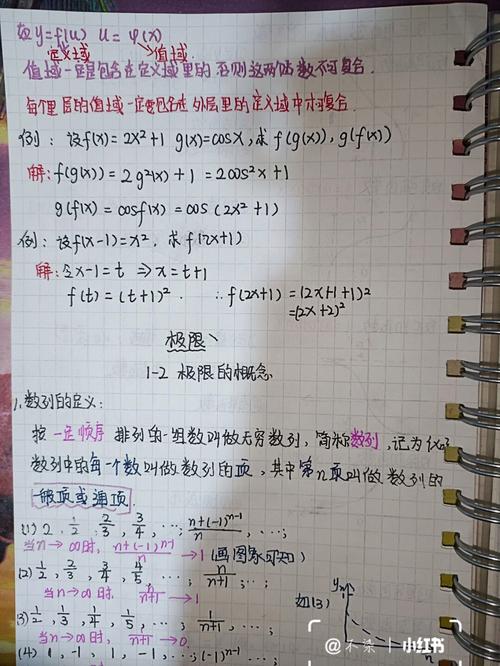 在y=f(u) u=φ(x)
定义域 值域
值域一定是包含在定义域里的 否则这两函数不可复合.
每个里层的值域一定要包含在外层里的定义域中才可复合
例：设f(x)=2x²+1 g(x)=cosx,求f(g(x)),g(f(x))
解:f(g(x))=2g²(x)+1=2cos²x+1
g(f(x)=cosf(x)=cos(2x²+1)
例：设f(x-1)=x²,求f(2x+1)
解:令x-1=t ⇒x=t+1
f(t)=(t+1)². ∴f(2x+1)=(2x+1+1)²
=(2x+2)²
极限、
1-2 极限的概念
1.数列的定义：
按一定顺序排列的一组数叫做无穷数列，简称数列,记为
数列中的每一个数叫做数列的项，其中第n项叫做数列的
一般项或通项.
(1) 2, 1/2, 2/3, 3/4, …; n+(-1)ⁿ⁻¹/n, …;
当n→∞时, n+(-1)ⁿ⁻¹/n →1 (画图象可知)
(2) 1/2, 2/3, 3/4, 4/5, …; n/n+1, …;
当n→∞时, n/n+1 →1
(3) 1/2, 1/3, 1/4, 1/5, …, 1/n+1, …;
如(3) y
当n→∞时, 1/n+1 →0
(4) 1, -1, 1, -1, …;(-1)ⁿ⁻¹
小红书